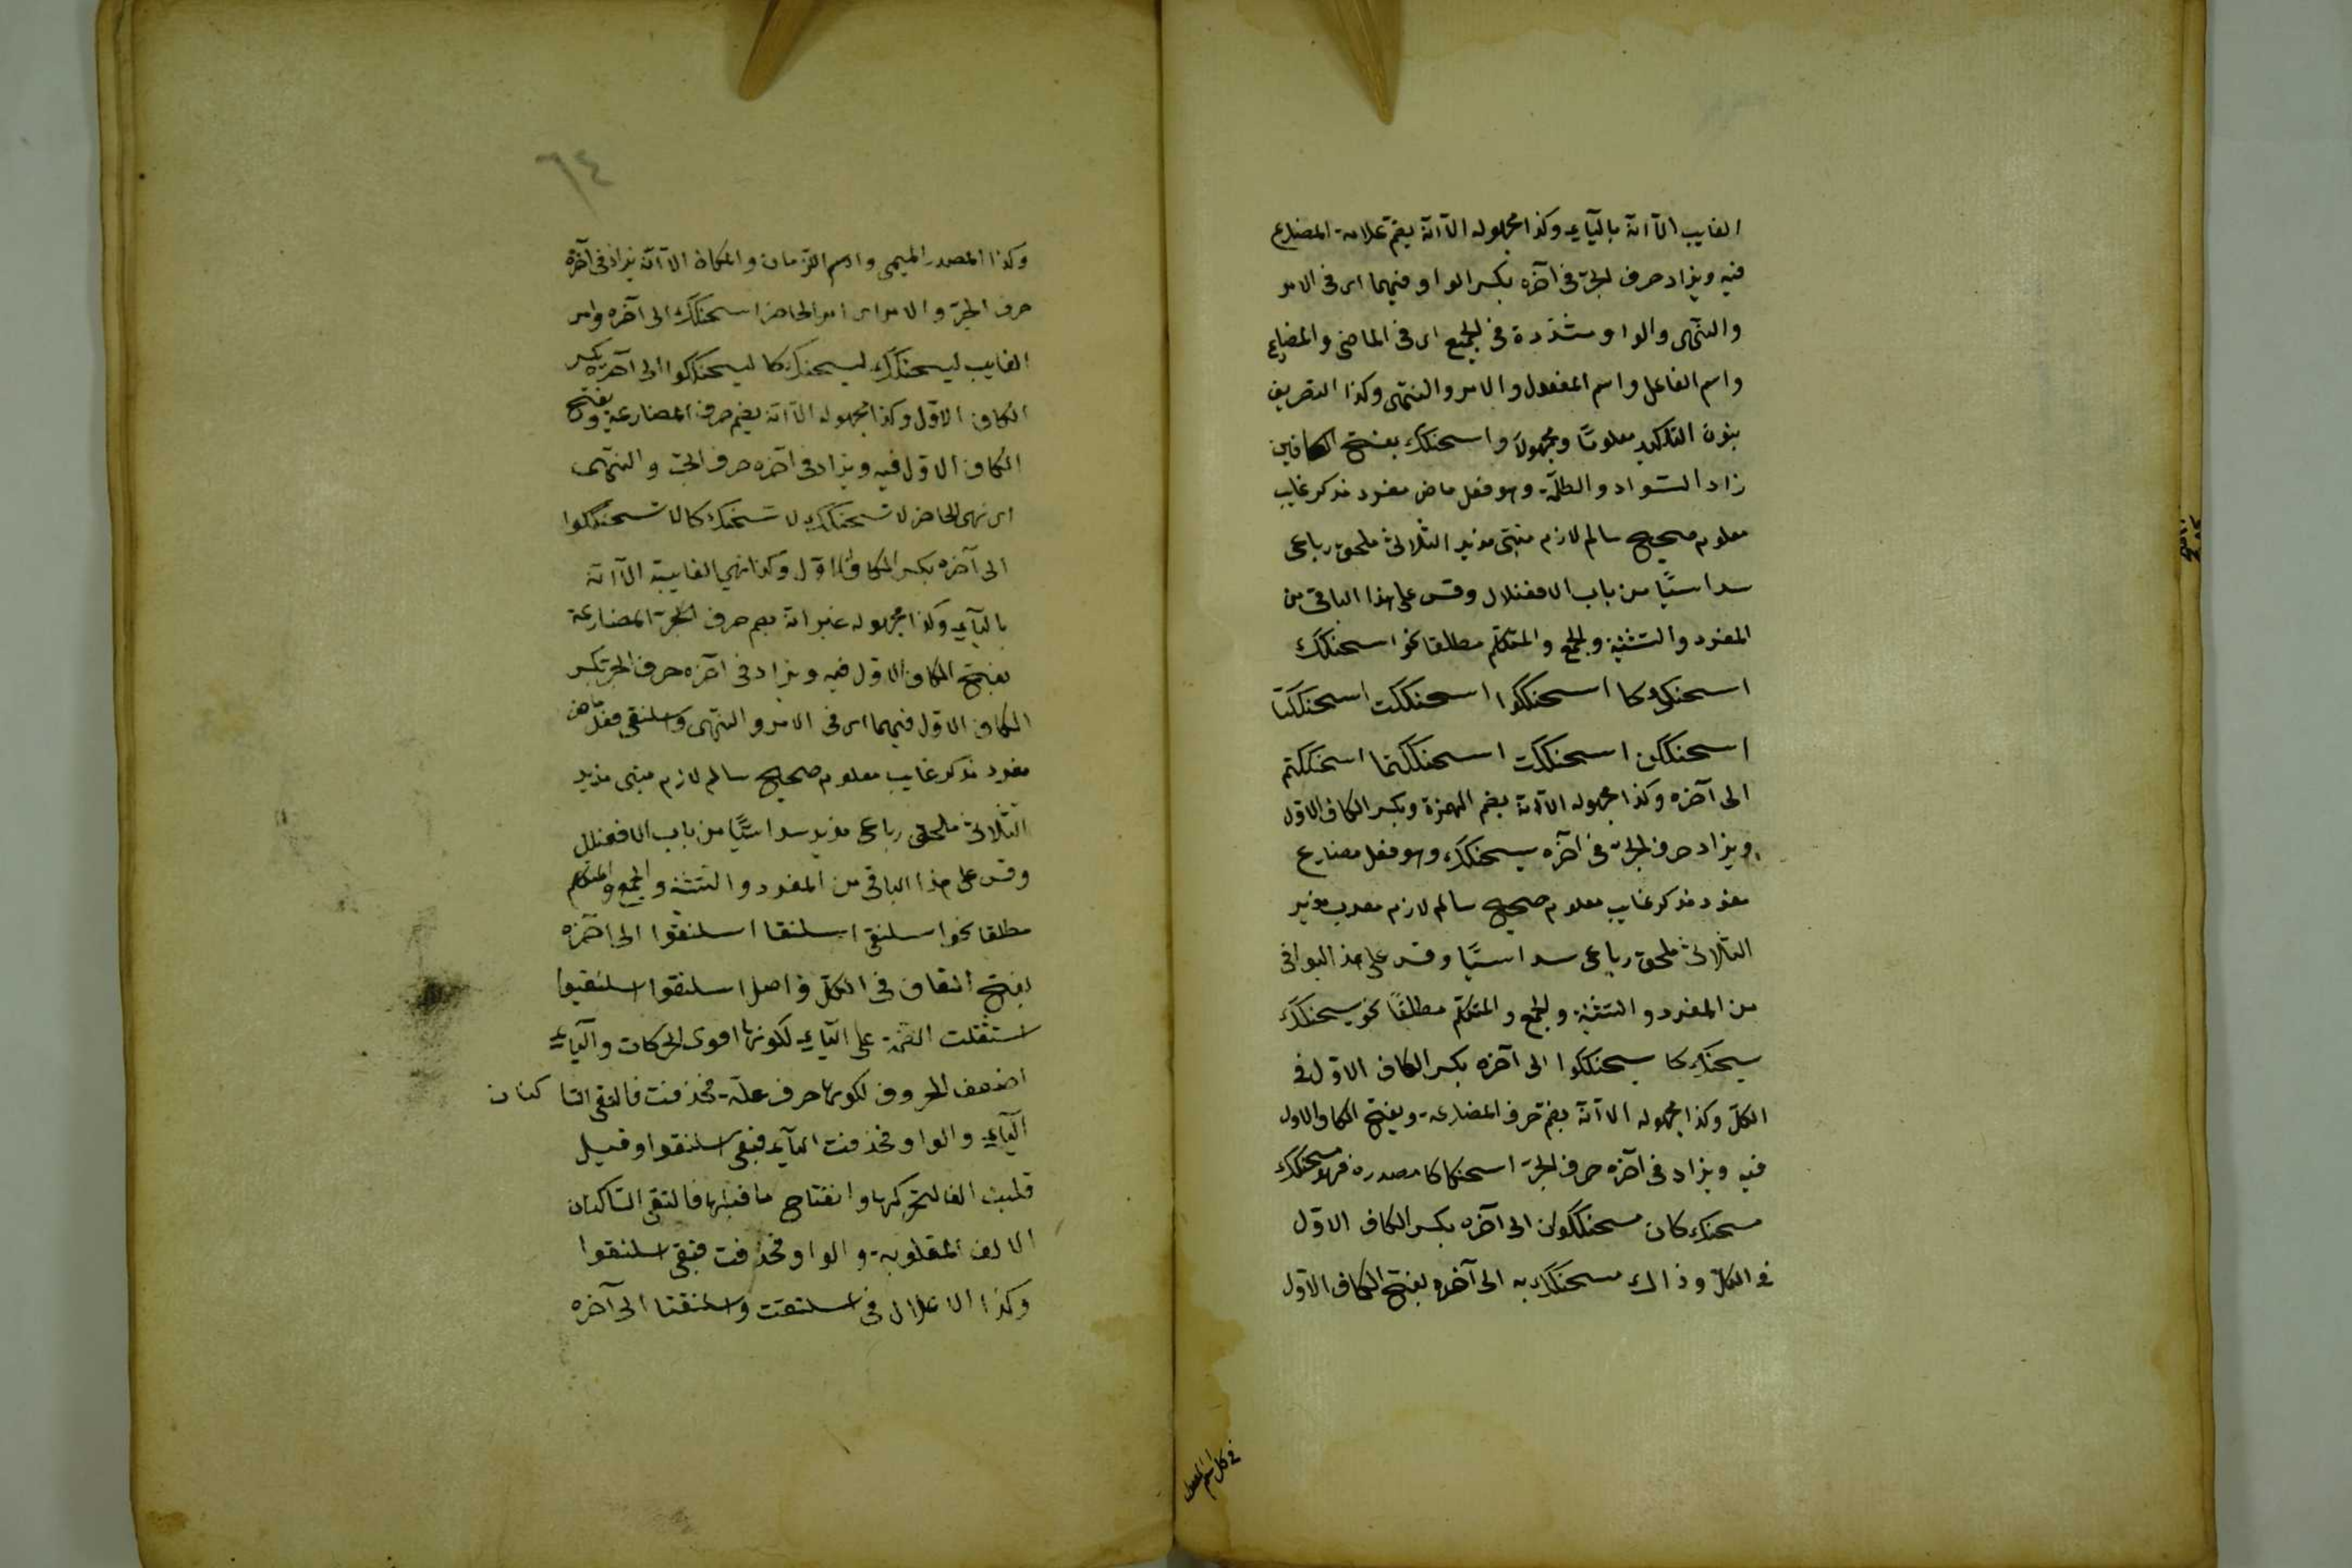 الغايب الا انه بالياء وكذا مجهوله الا انه يضم علامة المضارع
فيه ويزاد حرف الجر في آخره بكسر الواو فيهما اى في الامر
والنهى والواو مشددة في الجميع اى في الماضى والمضارع
واسم الفاعل واسم المفعول والامر والنهى وكذا التصريف
بنون التاكيد معلومًا ومجهولاً واسحنكك بفتح الكافين
زاد السواد والظلمة وهو فعل ماض مفرد مذكر غايب
معلوم صحيح سالم لازم مبنى مزيد الثلاثى ملحق رباعى
سداسيًا من باب الافعنلال وقس على هذا الباقى من
المفرد والتثنية والجمع والمتكلم مطلقا نحو اسحنكك
اسحنككا اسحنككوا اسحنككت اسحنككتا
اسحنككن اسحنككت اسحنككتما اسحنككتم
الى آخره وكذا مجهوله الا انه بضم الهمزة وبكسر الكاف الاول
ويزاد حرف الجر في آخره يسحنكك وهو فعل مضارع
مفرد مذكر غايب معلوم صحيح سالم لازم معرب مزيد
الثلاثى ملحق رباعى سداسيًا وقس على هذ البواقى
من المفرد والتثنية والجمع والمتكلم مطلقًا نحو يسحنكك
يسحنككا يسحنككوا الى آخره بكسر الكاف الاول في
الكل وكذا مجهوله الا انه بضم حرف المضارعة وبفتح الكاف الاول
فيه ويزاد في آخره حرف الجر اسحنكاكا مصدره فهو مسحنكك
مسحنككان مسحنككون الى آخره بكسر الكاف الاول
في الكل وذاك مسحنكك به الى آخره بفتح الكاف الاول
في كل اسم المفعول
٦٤
وكذا المصدر الميمى واسم الزمان والمكان الا انه يزاد في آخره
حرف الجر والامر اى امر الحاضر اسحنكك الى آخره وامر
الغايب ليسحنكك ليسحنككا ليسحنككوا الى آخره بكسر
الكاف الاول وكذا مجهوله الا انه يضم حرف المضارعة وبفتح
الكاف الاول فيه ويزاد في آخره حرف الجر والنهى
اى نهى الحاضر لا تسحنكك لا تسحنككا لا تسحنككوا
الى آخره بكسر الكاف الاول وكذا نهى الغايبة الا انه
بالياء وكذا مجهوله غير انه بضم حرف الجر المضارعة
بفتح الكاف الاول فيه ويزاد في آخره حرف الجر بكسر
الكاف الاول فيهما اى في الامر والنهى واسلنقى فعل ماض
مفرد مذكر غايب معلوم صحيح سالم لازم مبنى مزيد
الثلاثى ملحق رباعى مزيد سداسيًا من باب الافعنلل
وقس على هذا الباقى من المفرد والتثنية والجمع والمتكلم
مطلقا نحو اسلنقى اسلنقا اسلنقوا الى آخره
بفتح القاف في الكل واصل اسلنقوا اسلنقيوا
استثقلت الضمة على الياء لكونها اقوى الحركات والياء
اضعف الحروف لكونها حرف علة فحذفت فالتقى الساكنان
الياء والواو فحذفت الياء فبقى اسلنقوا وقيل
قلبت الفا لتحركها وانفتاح ما قبلها فالتقى الساكنان
الالف المقلوبة والواو فحذفت فبقى اسلنقوا
وكذا الاعلال في اسلنقت واسلنقتا الى آخره